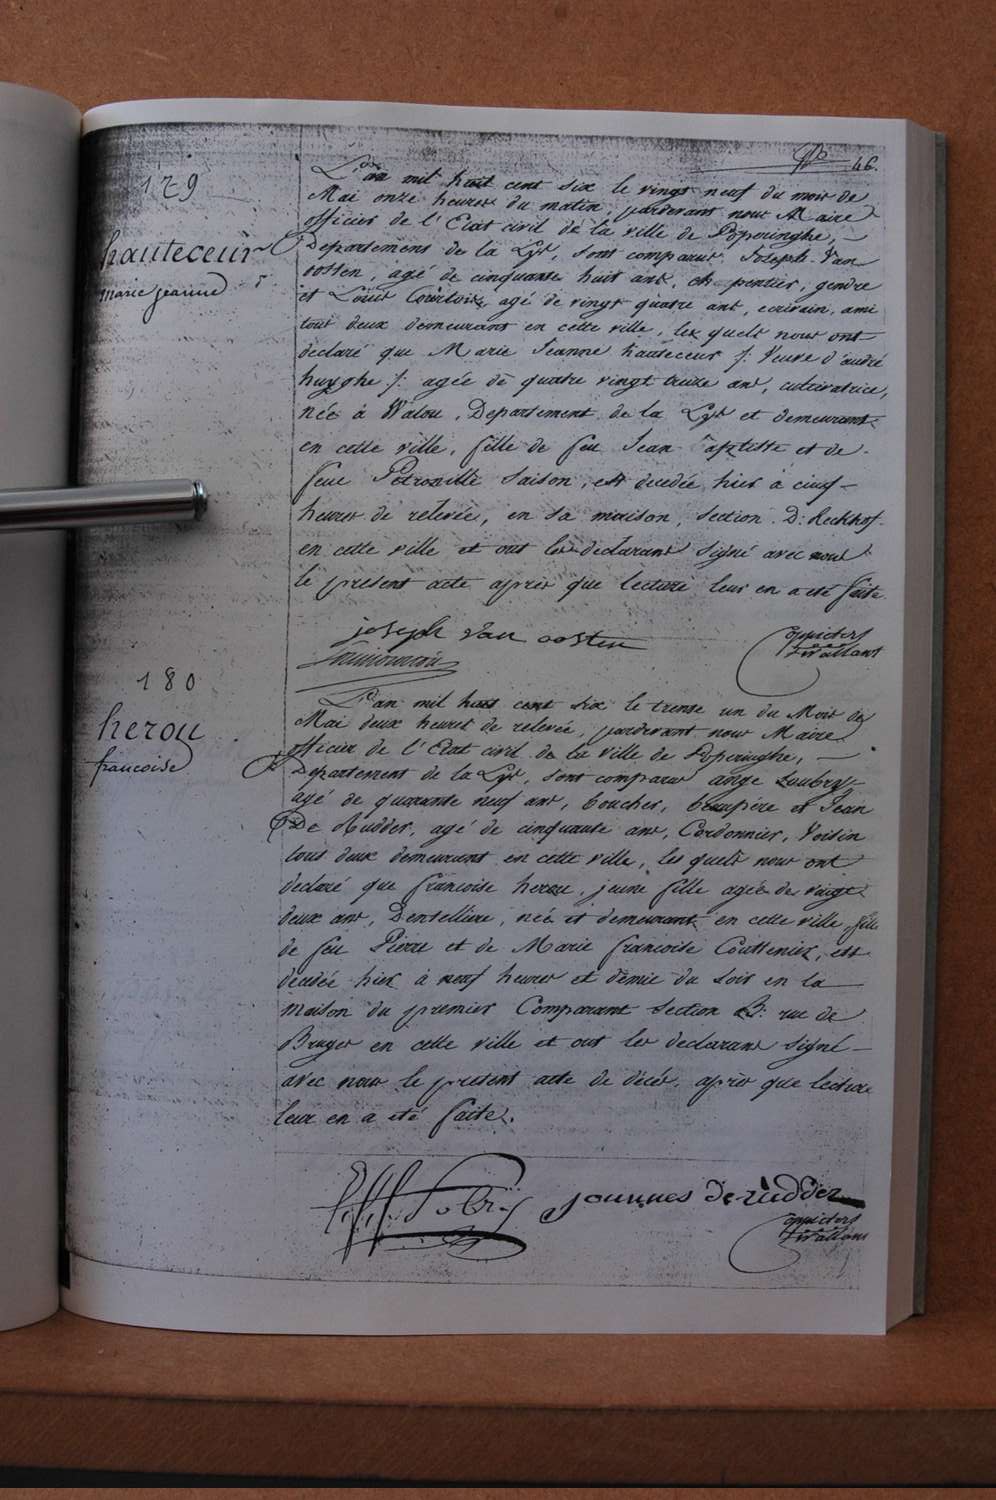 46.
179
hauteceur
marie jeanne
L'an mil huit cent six le vingt neuf du mois de
Mai onze heures du matin, pardevant nous Maire
officier de l'Etat civil de la ville de Poperinghe, —
Departement de la Lys, sont comparus Joseph Van
oosten, agé de cinquante huit ans, charpentier, gendre
et Louis Courtois, agé de vingt quatre ans, ecrivain, ami
tous deux demeurans en cette ville, les quels nous ont
declaré que Marie Jeanne hauteceur /: Veuve d'andré
huyghe :/ agée de quatre vingt treize ans, cultivatrice,
née à Watou, Departement de la Lys et demeurant
en cette ville, fille de feu Jean Baptiste et de
feue Petronille Saison, est decedée hier à cinq
heures de relevée, en sa maison, section D: Reckhof
en cette ville et ont les declarans signé avec nous
le present acte après que lecture leur en a été faite
joseph van oosten
180
herou
francoise
L'an mil huit cent six le trente un du Mois de
Mai deux heures de relevée, pardevant nous Maire
officier de l'Etat civil de la ville de Poperinghe, —
Departement de la Lys, sont comparus ange Loubry
agé de quarante neuf ans, boucher, beaupère et Jean
De Rudder, agé de cinquante ans, Cordonnier, Voisin
tous deux demeurans en cette ville, les quels nous ont
declaré que francoise herou, jeune fille agée de vingt
deux ans, Dentellière, née et demeurant en cette ville, fille
de feu Pierre et de Marie francoise Couttenier, est
decedée hier à neuf heures et demie du soir en la
maison du premier Comparant section B: rue de
Bruges en cette ville et ont les declarans signé
avec nous le present acte de décès, après que lecture
leur en a été faite.
joannes de rudder